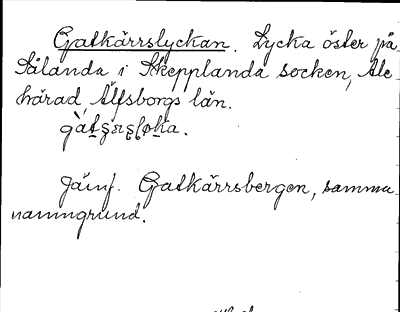 Gatkärrslyckan. Lycka öster på
Sålanda i Skepplanda socken, Ale
härad, Älfsborgs län.

Jämf. Gatkärrsbergen, samma
namngrund.